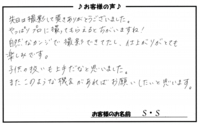 ♪お客様の声♪
先日は撮影して頂きありがとうございました。
やっぱりプロに撮ってもらえると ちがいますね!
自然なカンジで撮影できてたし、仕上がりがとても
楽しみです。
子供の扱いも上手だなと思いました。
またこのような機会があればお願いしたいと思います。
お客様のお名前 S・S